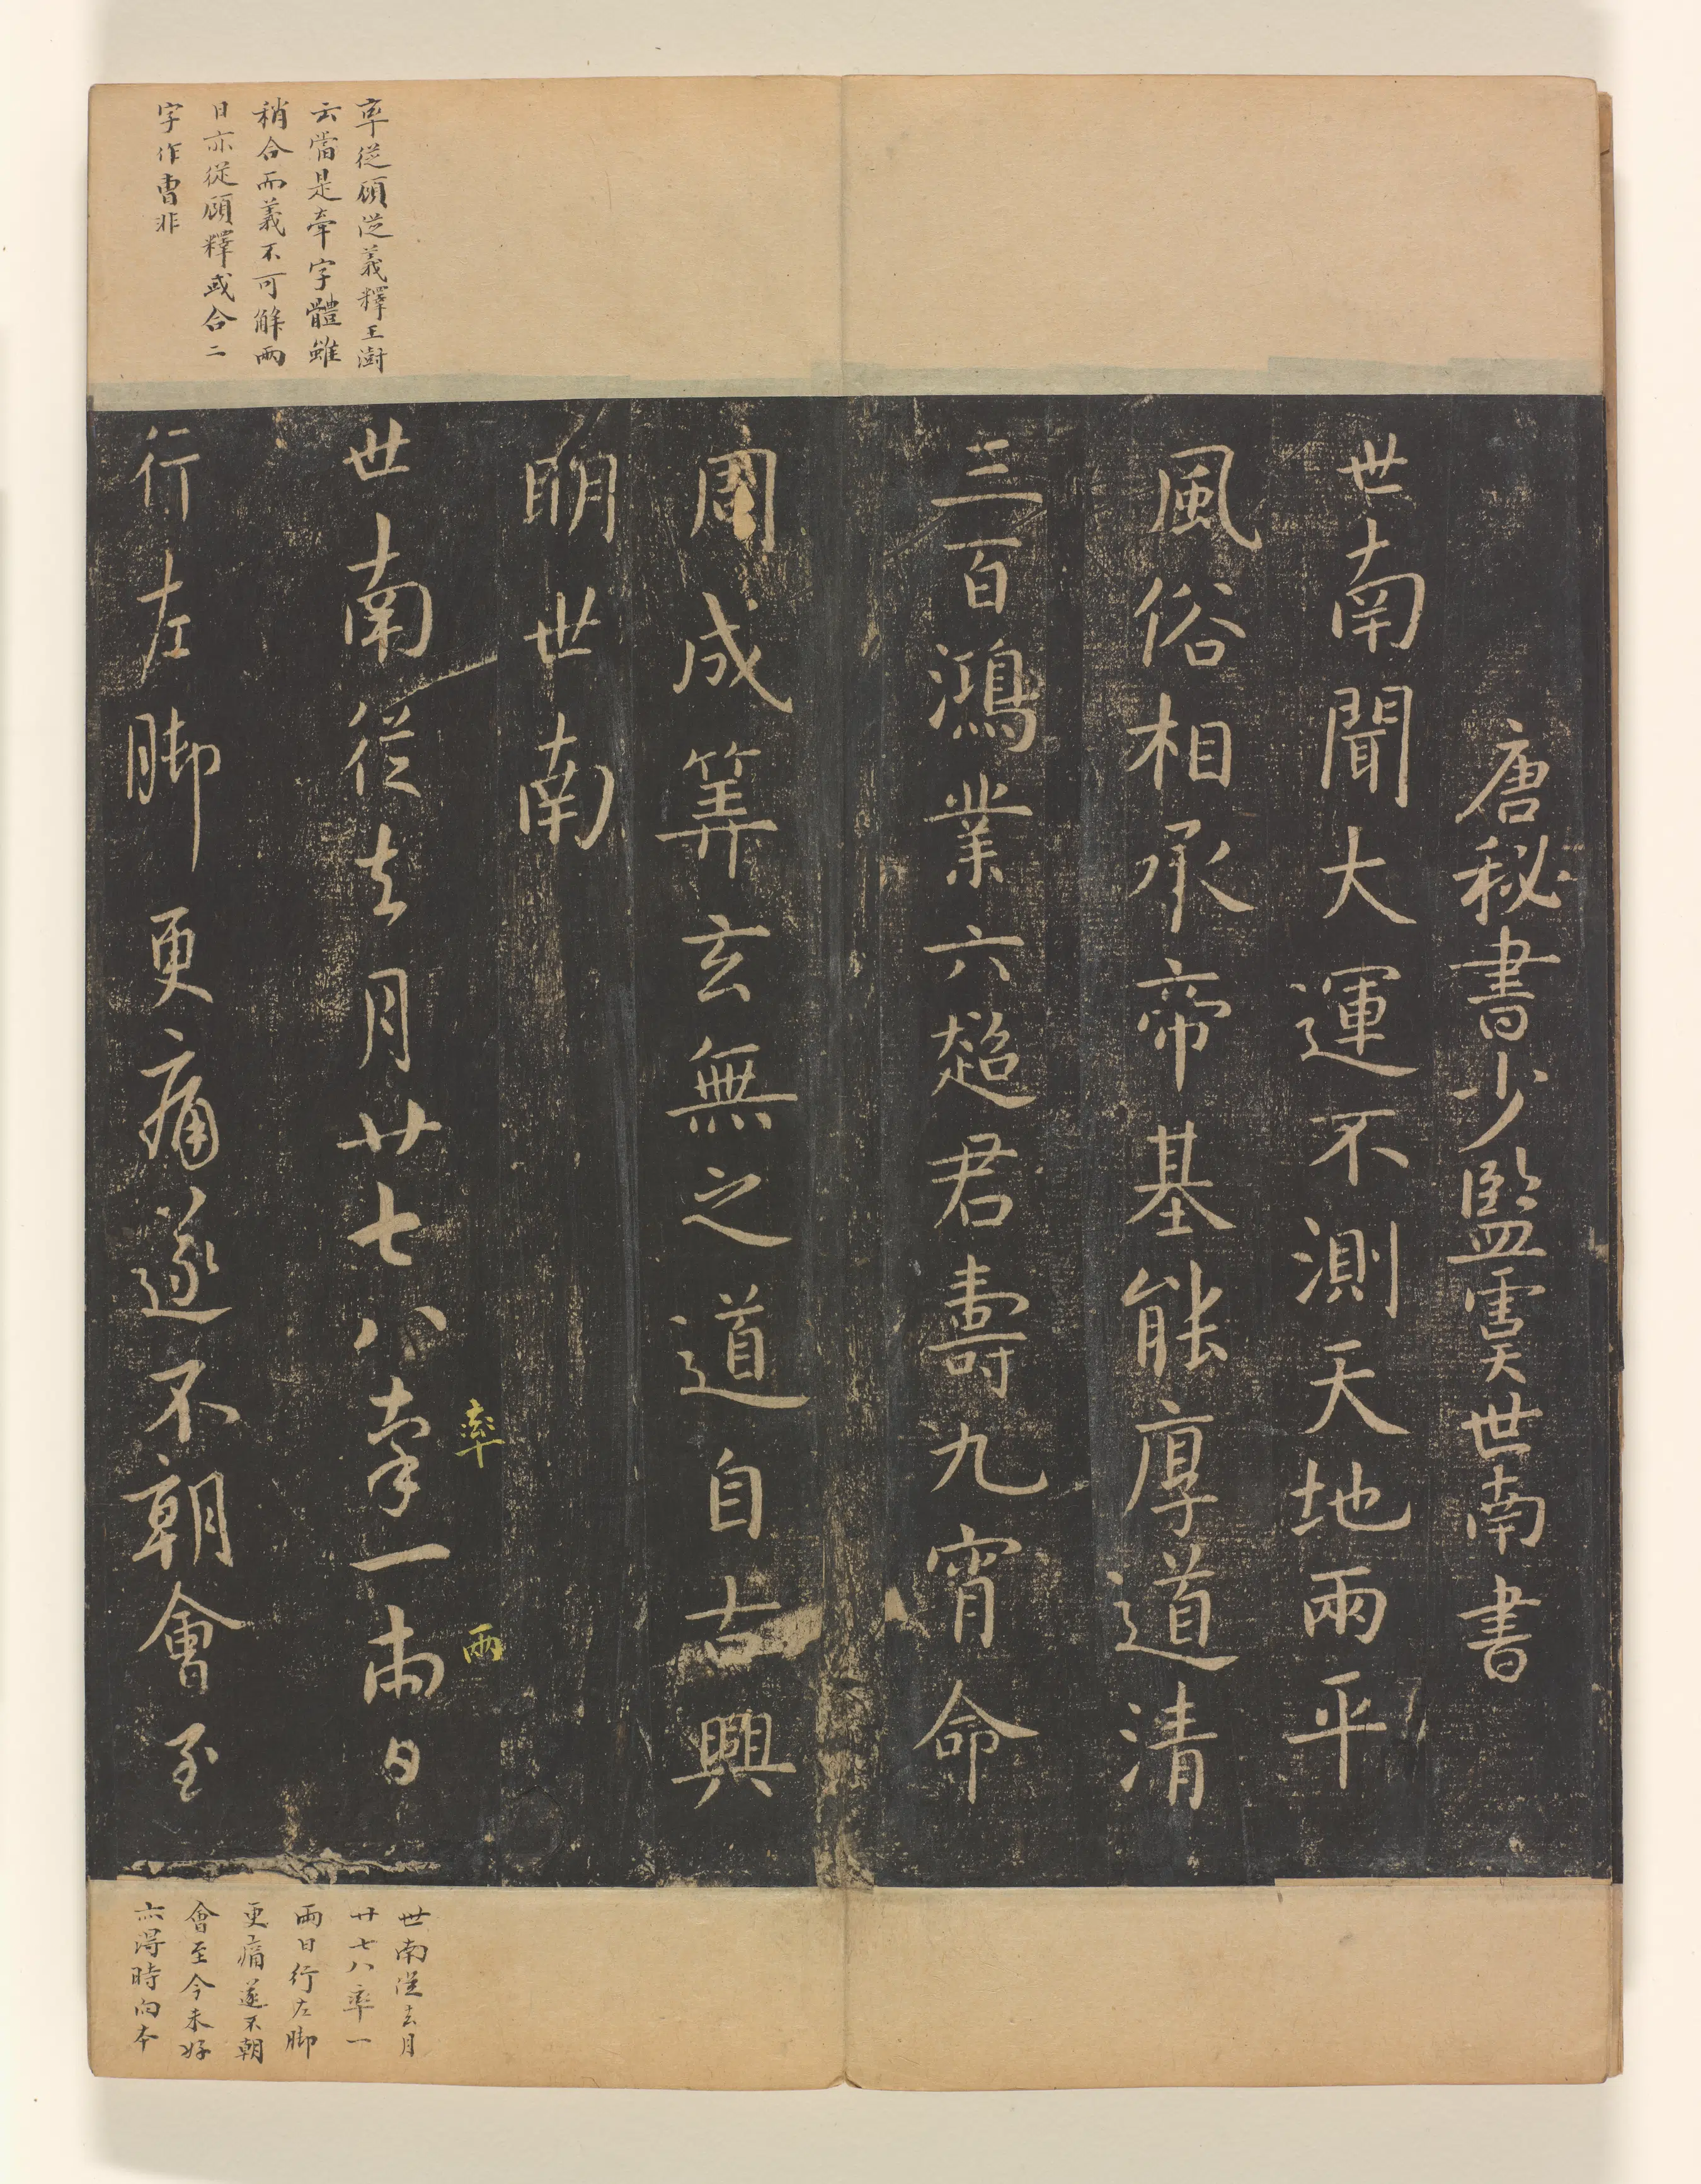 唐秘書少監虞世南書
世南聞大運不測天地兩平
風俗相承帝基能厚道清
三百鴻業六超君壽九宵命
周成筭玄無之道自古興
明世南
世南從去月廿七八率一兩日
率
兩
行左脚更痛遂不朝會至
率從顧從義釋王澍
云當是牽字體雖
稍合而義不可解兩
日亦從顧釋或合二
字作曹非
世南從去月
廿七八率一
兩日行左脚
更痛遂不朝
會至今未好
亦得時向本